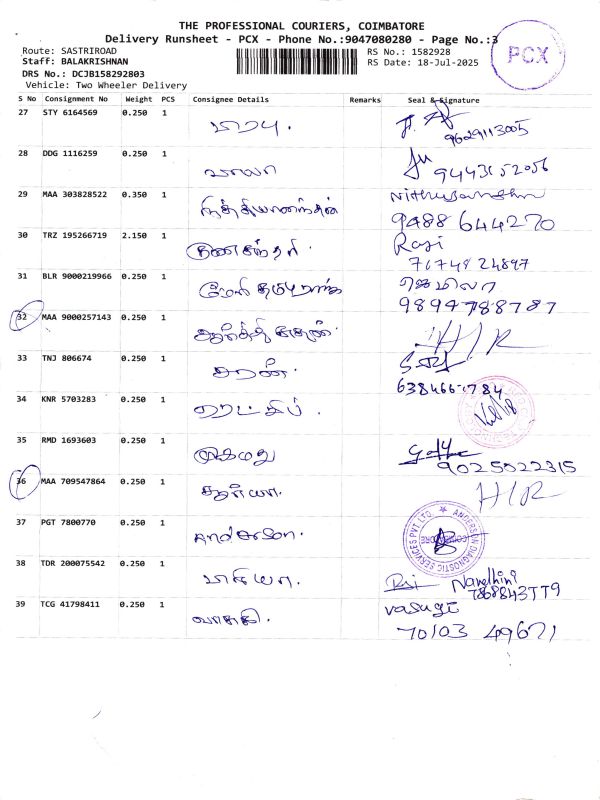 THE PROFESSIONAL COURIERS, COIMBATORE
Delivery Runsheet - PCX - Phone No.:9047080280 - Page No.:3
Route: SASTRIROAD
RS No.: 1582928
Staff: BALAKRISHNAN
RS Date: 18-Jul-2025
DRS No.: DCJB158292803
Vehicle: Two Wheeler Delivery
PCX
S No Consignment No Weight PCS Consignee Details Remarks Seal & Signature
27 STY 6164569 0.250 1
9629113005
28 DDG 1116259 0.250 1 வாலா
9443152056
29 MAA 303828522 0.350 1 நித்தியானந்தன்
9488 644270
30 TRZ 195266719 2.150 1 குணசுந்தரி. Raji
7674824897
31 BLR 9000219966 0.250 1 ஜெமிலா
9894788787
32 MAA 9000257143 0.250 1 H/R
33 TNJ 806674 0.250 1 சரண்.
34 KNR 5703283 0.250 1
35 RMD 1693603 0.250 1 முகமது
9025022315
36 MAA 709547864 0.250 1 H/R
37 PGT 7800770 0.250 1 Anderson.
ANDERSON DIAGNOSTIC SERVICES PVT. LTD.
38 TDR 200075542 0.250 1 Navedhini
7868843779
39 TCG 41798411 0.250 1 வாசுகி. vasugi
70103 49671